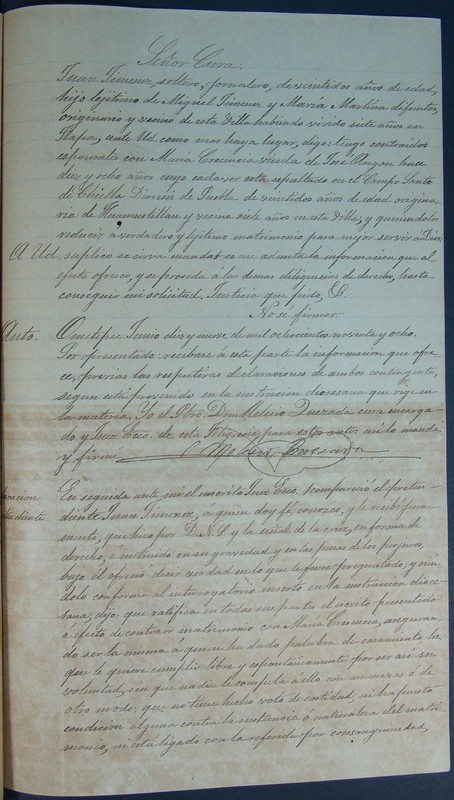 Señor Cura.
Juan Jimenez, soltero, jornalero, de veintidos años de edad,
hijo lejitimo de Miguel Jimenez y Maria Martina difuntos,
originario y vecino de esta Villa habiendo vivido siete años en
Tlapa, ante Ud. como mas haya lugar, digo: tengo contraidos
esponsales con Maria Crecencia viuda de José hace
diez y ocho años cuyo cadaver esta sepultado en el Campo Santo
de Chietla Diocesis de Puebla de veintidos años de edad origina
ria de Huamustitlan y vecina siete años en esta Villa; y queriendolos
reducir a verdadero y lejitimo matrimonio para mejor servir a Dios;
A Ud. suplico se sirva mandar se me admita la informacion que al
efecto ofresco, y se proceda á las demas diligencias de derecho, hasta
conseguir mi solicitud. Justicia que pido, &.
No se firmar.
Auto. Ometepec Junio diez y nueve de mil ochocientos noventa y ocho.
Por presentado: recibase á esta parte la informacion que ofre
ce, previas las respectivas declaraciones de ambos contrayentes,
segun está prevenido en la instruccion diocesana que rige en
la materia. Yo el Pbro. Don Melecio Quezada cura encarga
do y Juez Ecco. de esta Feligrecia, por este auto asi lo mandé
y firmé Melecio Quesada
laracion En seguida ante mi el inscrito Juez Ecco. compareció el preten
diente Juan Jimenez, á quien doy fé, conosco, y le recibí jura
mento, que hizo por D. N. S. y la señal de la cruz, en forma de
derecho, é instruido en su gravedad y en las penas de los perjuros,
bajo el ofreció decir verdad en lo que le fuere preguntado, y sien
dolo conforme al interrogatorio inserto en la instruccion dioce
sana, dijo: que ratifica en todas sus partes el escrito presentado
a efecto de contraer matrimonio con Maria Crecencia, aseguran
do ser la misma á quien ha dado palabra de casamiento la
que le quiere cumplir libre y espontaneamente por ser asi su
voluntad, sin que nadie le compela á ello con amenazas ó de
otro modo: que no tiene hecho voto de castidad, ni ha puesto
condicion alguna contra la sustancia ó naturaleza del matri
monio, ni está ligado con la referida por consanguinidad,